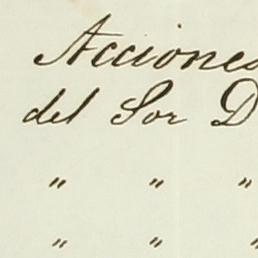 Acciones
del Sor D
" " "
" " "